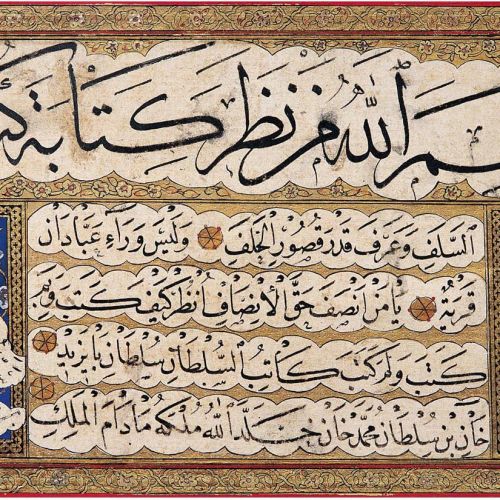 الله من نظر كتابة
السلف وعرف قدر قصور الخلف وليس وراء عبادان
قرية يا من انصف حق الانصاف انظر كيف كتب وفيم
كتب ولم كتب كاتب السلطان سلطان بايزيد
خان بن سلطان محمد خان خلد الله ملكه ما دام الملك